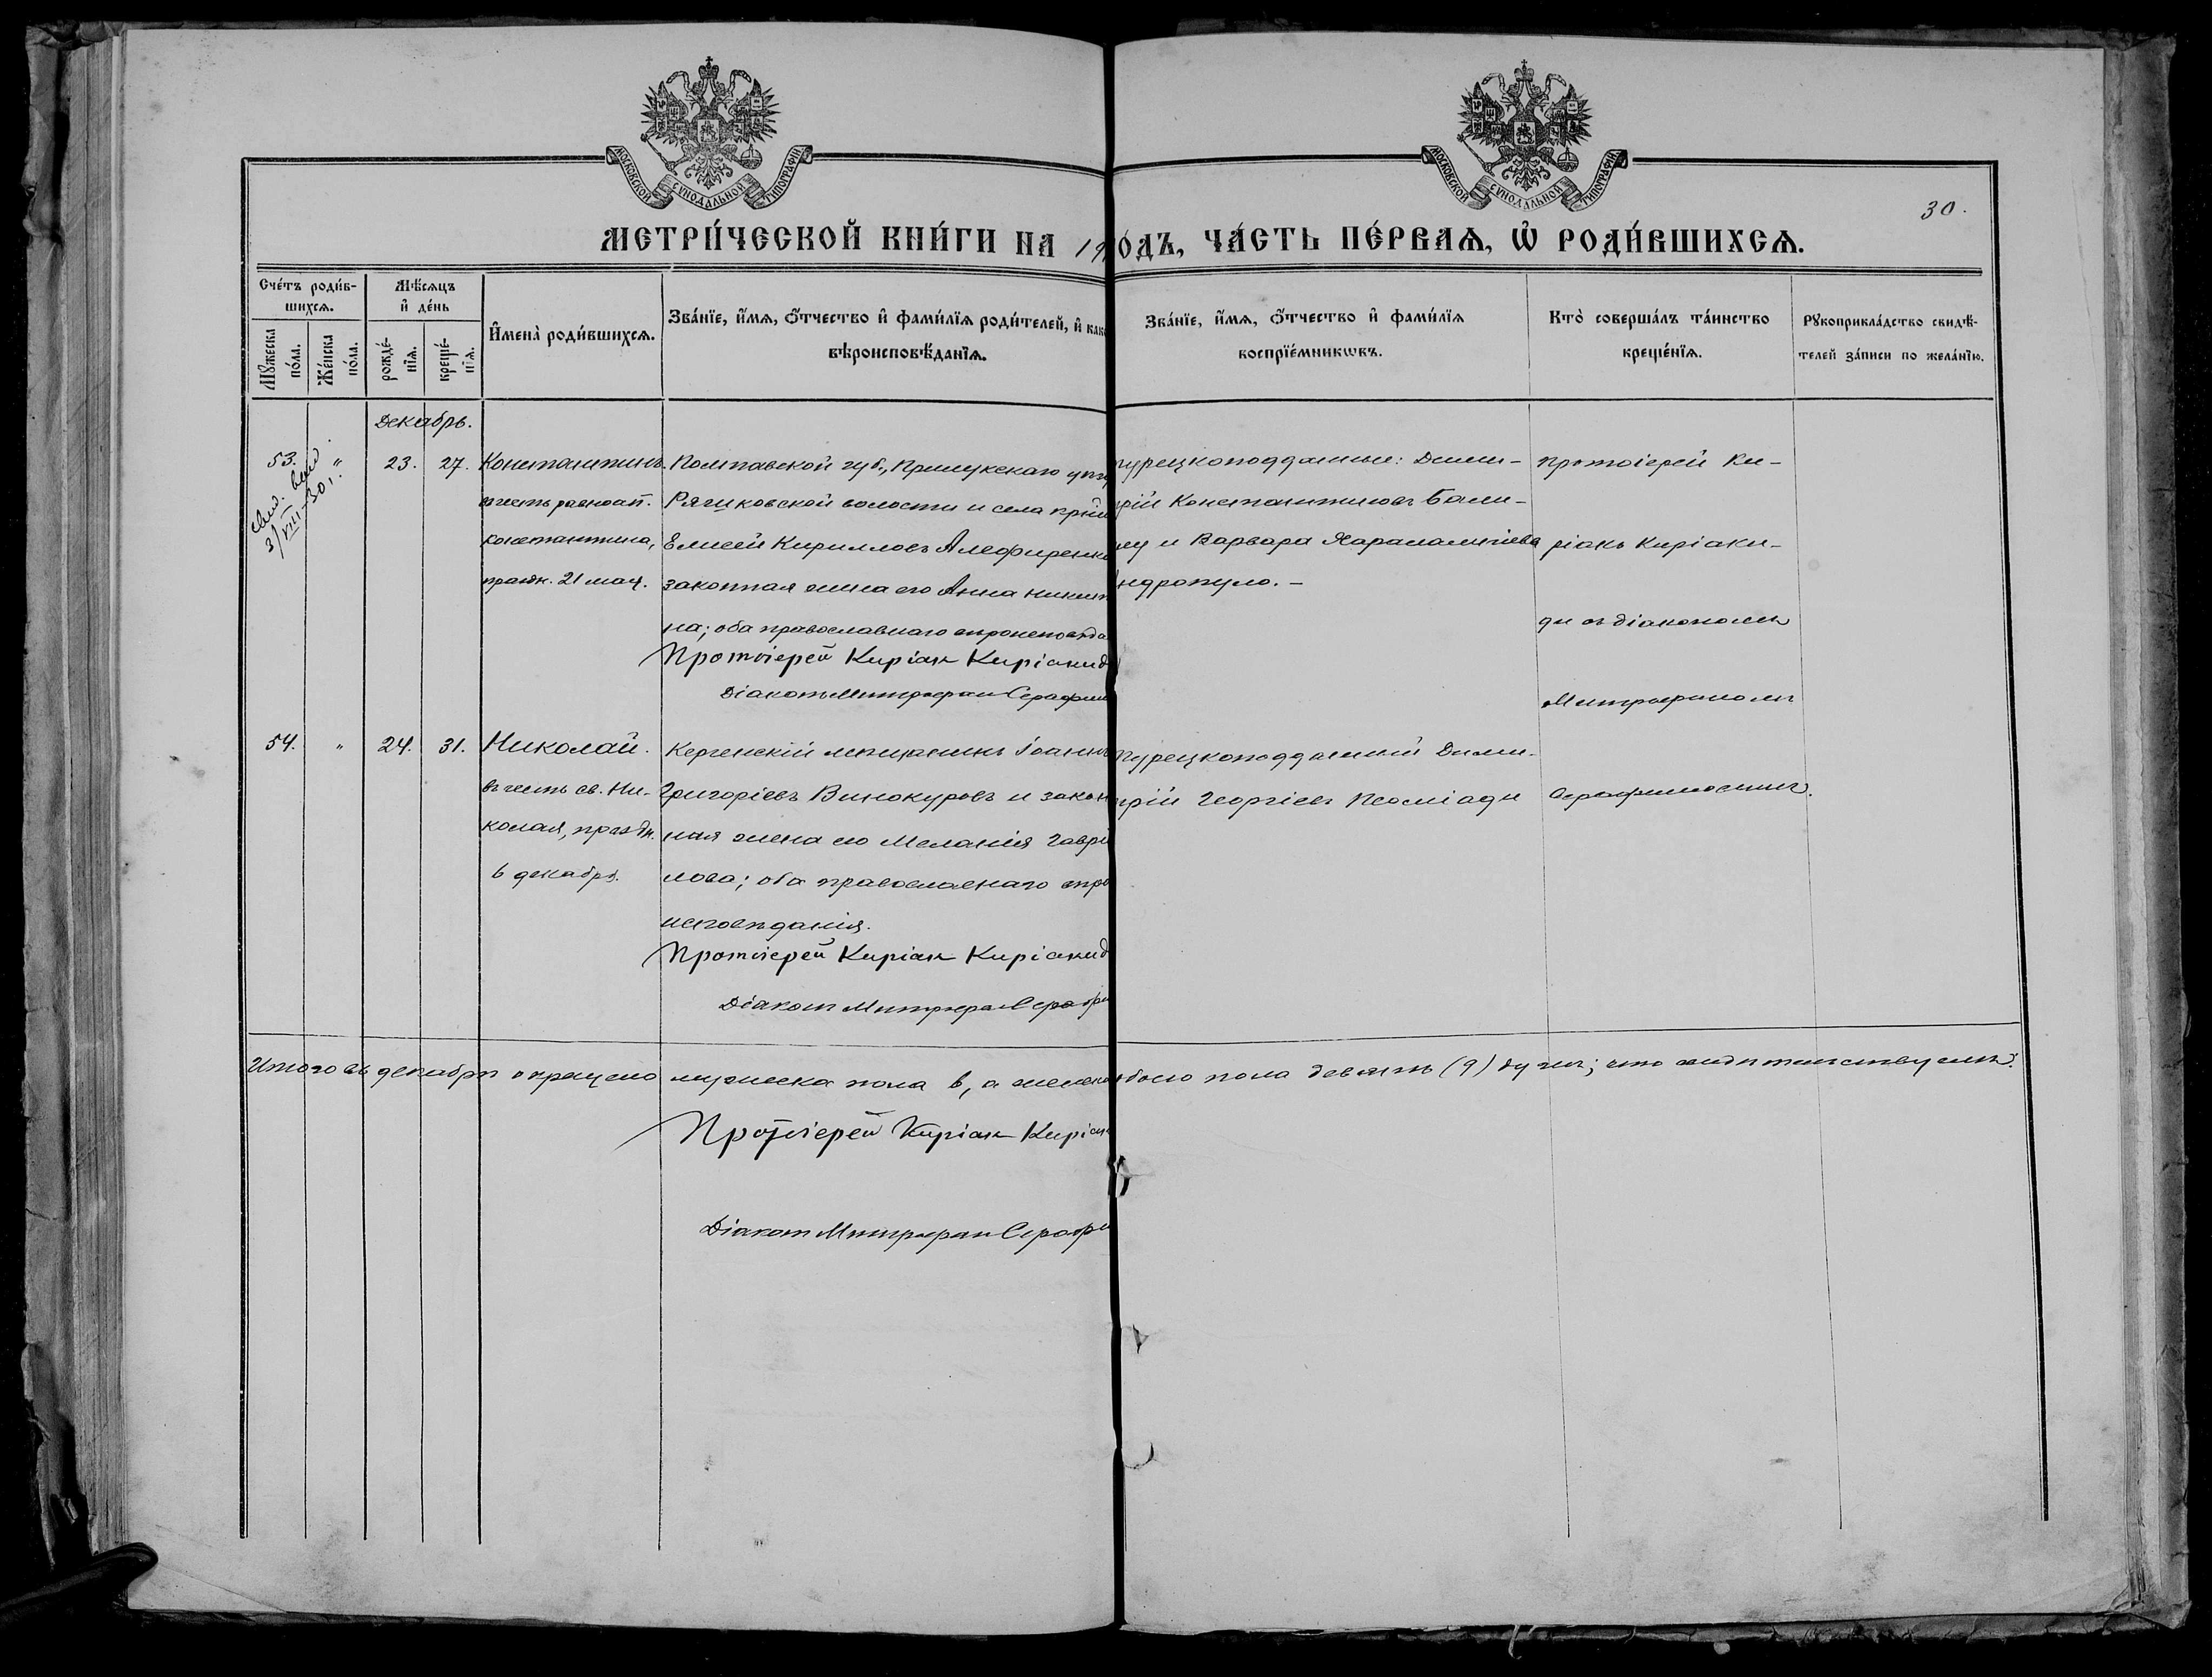 МОСКОВСКОЙ СѴНОДАЛЬНОЙ ТИПОГРАФІИ
МОСКОВСКОЙ СѴНОДАЛЬНОЙ ТИПОГРАФІИ
30.
МЕТРИ́ЧЕСКОЙ КНИ́ГИ НА 19
ОДЪ, ЧА́СТЬ ПЕ́РВАѦ, Ѡ҆ РОДИ́ВШИХСѦ.
Сче́тъ роди́в-
шихсѧ.
Мꙋ́жеска по́ла.
Же́нска по́ла.
Мѣ́сѧцъ
и҆ де́нь
рожде́-нїѧ.
креще́-нїѧ.
И҆мена̀ роди́вшихсѧ.
Зва́нїе, и҆́мѧ, ѻ҆́тчество и҆ фами́лїѧ роди́телей, и҆ как
вѣроисповѣ́данїѧ.
Зва́нїе, и҆́мѧ, ѻ҆́тчество и҆ фами́лїѧ
воспрїе́мникѡвъ.
Кто̀ соверша́лъ та́инство
креще́нїѧ.
Рꙋкоприкла́дство свидѣ́-
телей за́писи по жела́нїю.
Декабрь.
53. " 23. 27.
3/VIII-30 г.
Константинъ.
въ честь равноап.
Константина,
праздн. 21 мая.
Полтавской губ., Прилукскаго уѣз
волости и села
Елисей Кирилловъ Алефиренко
законная жена его Анна Никит
на; оба православнаго вѣроисповѣда
Протоіерей Киріак Киріакид
Діаконъ Митрофан Серафим
турецкоподданные: Дими-
трій Константиновъ Бали-
и Варвара Харалампіева
ндропуло. –
протоіерей Ки-
ріакъ Киріаки-
ди съ діакономъ
Митрофаномъ
54. " 24. 31.
Николай.
въ честь св. Ни-
колая, праздн.
6 декабря.
Керченскій мѣщанинъ Іоаннъ
Григоріевъ Винокуровъ и закон
ная жена его Меланія Гаврі
лова; оба православнаго вѣро
исповѣданія.
Протоіерей Киріак Киріакид
Діаконъ Митрофан Серафи
турецкоподданный Дими-
трій Георгіевъ
Итого въ декабрѣ окрещено мужеска пола 6, а женска
пола девять (9) душъ; что свидѣтельствуемъ:
Протоіерей Киріак Киріак
Діаконъ Митрофан Серафи